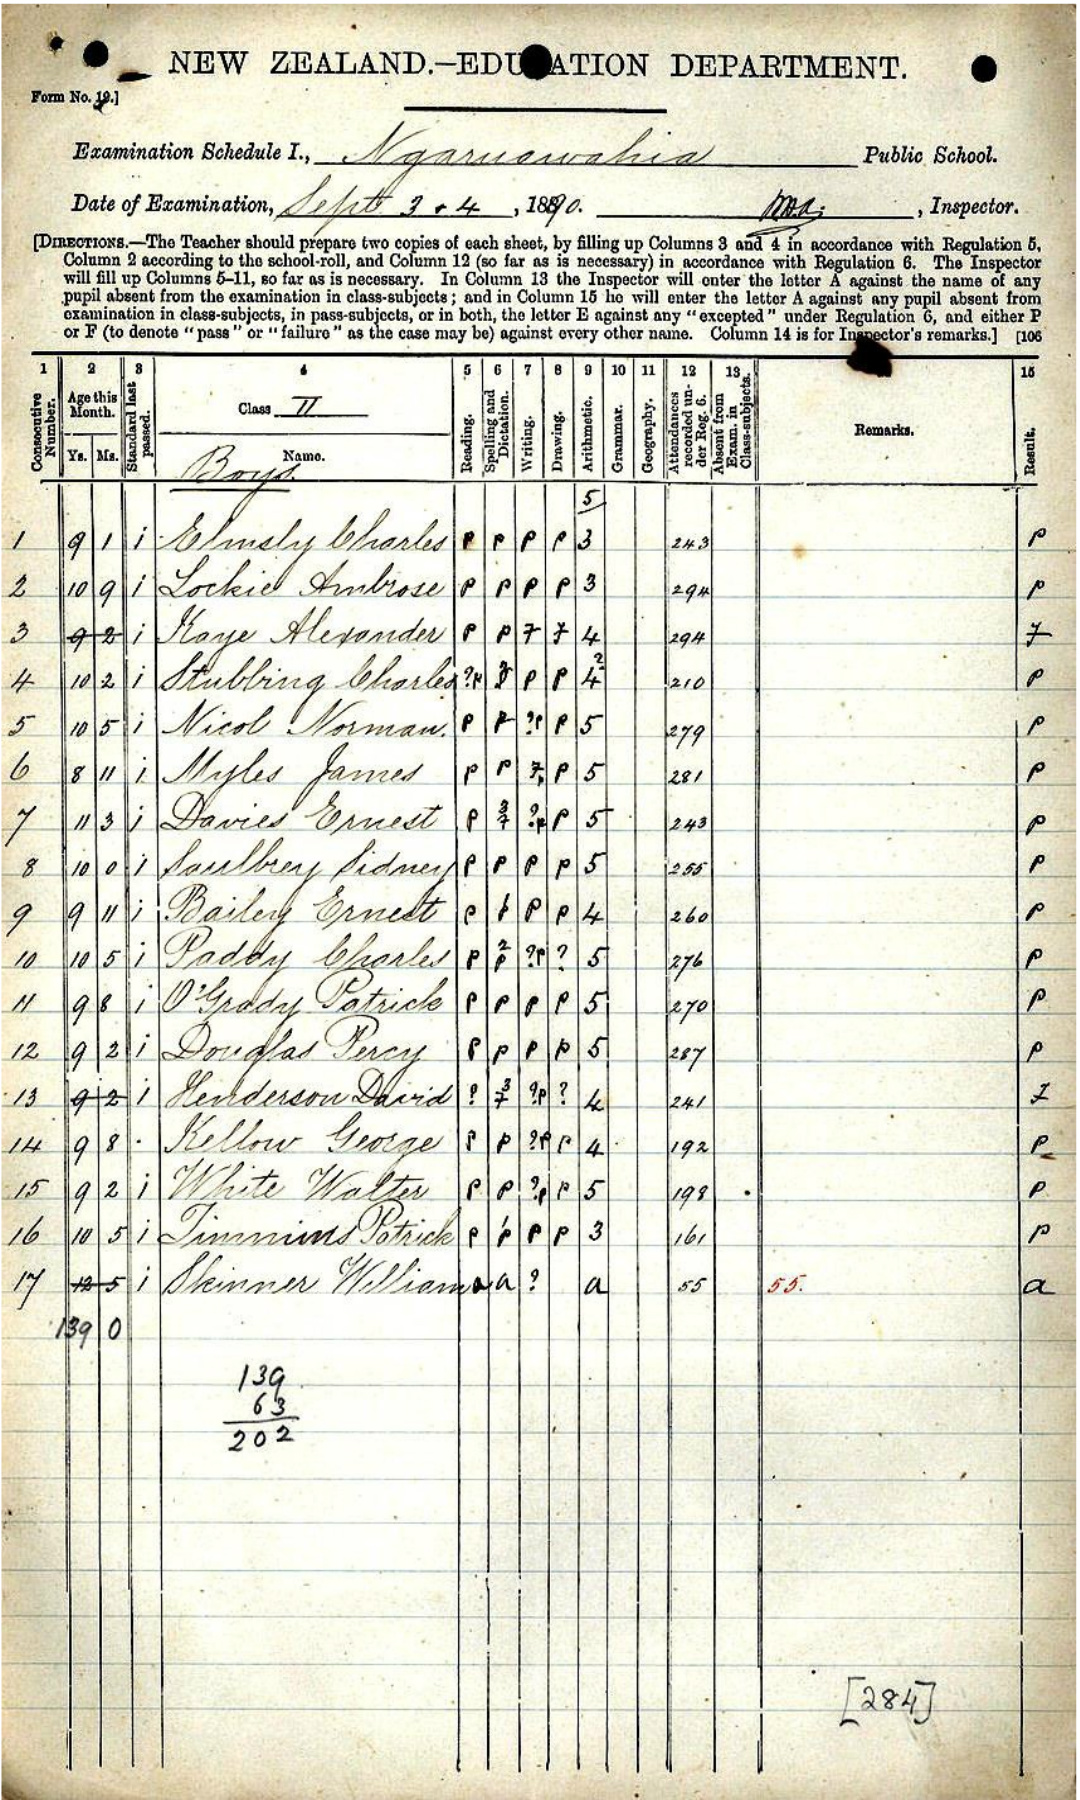 NEW ZEALAND.—EDUCATION DEPARTMENT.
Form No. 19.]
Examination Schedule I., Ngaruawahia Public School.
Date of Examination, Sept 3 + 4, 1890. , Inspector.
[DIRECTIONS.—The Teacher should prepare two copies of each sheet, by filling up Columns 3 and 4 in accordance with Regulation 5,
Column 2 according to the school-roll, and Column 12 (so far as is necessary) in accordance with Regulation 6. The Inspector
will fill up Columns 5–11, so far as is necessary. In Column 13 the Inspector will enter the letter A against the name of any
pupil absent from the examination in class-subjects; and in Column 15 he will enter the letter A against any pupil absent from
examination in class-subjects, in pass-subjects, or in both, the letter E against any "excepted" under Regulation 6, and either P
or F (to denote "pass" or "failure" as the case may be) against every other name. Column 14 is for Inspector's remarks.] [106
1 2 3 4 5 6 7 8 9 10 11 12 13 15
Consecutive Number. Age this Month. Ys. Ms. Standard last passed. Class II Name. Reading. Spelling and Dictation. Writing. Drawing. Arithmetic. Grammar. Geography. Attendances recorded under Reg. 6. Absent from Exam. in Class-subjects. Remarks. Result.
Boys.
5
1 9 1 i Elmsly Charles P P P P 3 243 P
2 10 9 i Lockie Ambrose P P P P 3 294 P
3 9 2 i Kaye Alexander P P F F 4 294 F
4 10 2 i Stubbing Charles ?P P P 4 ? 210 P
5 10 5 i Nicol Norman. P ?P P 5 279 P
6 8 11 i Myles James P P P 5 281 P
7 11 3 i Davies Ernest P 3 F ?P P 5 243 P
8 10 0 i Saulbrey Sidney P P P P 5 255 P
9 9 11 i Bailey Ernest P P P 4 260 P
10 10 5 i Paddy Charles P 2 P ?P ? 5 276 P
11 9 8 i O'Grady Patrick P P P P 5 270 P
12 9 2 i Douglas Percy P P P P 5 287 P
13 9 2 i Henderson David ? 3 F ?P ? 4 241 F
14 9 8 Kellow George P P ?P P 4 192 P
15 9 2 i White Walter P P ?P P 5 198 P
16 10 5 i Timmins Patrick P P P P 3 161 P
17 12 5 i Skinner William a a ? a 55 55. a
139 0
139
63
202
[284]